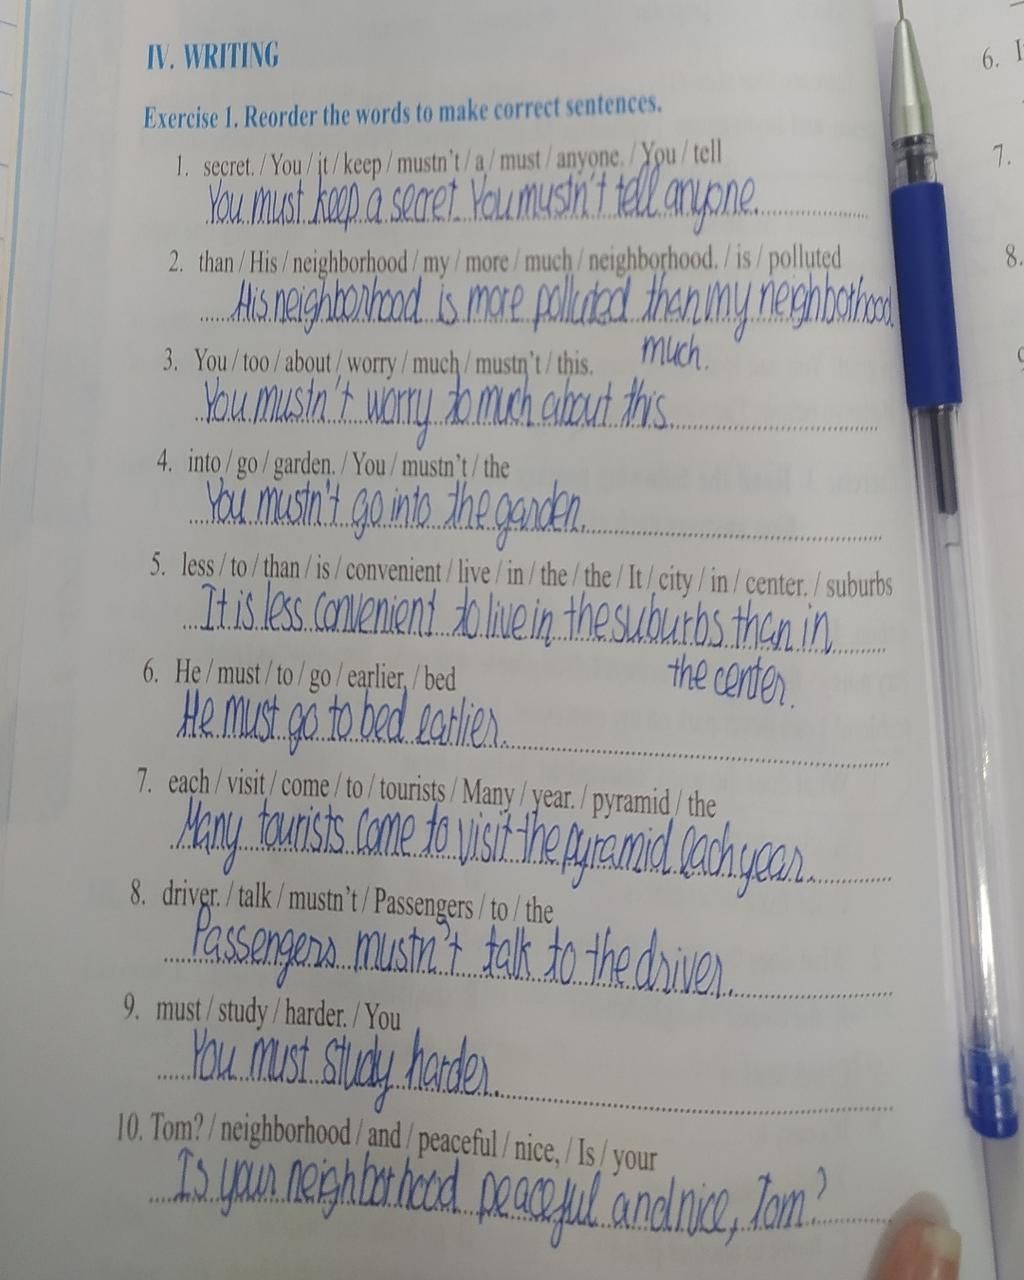 IV. WRITING
Exercise 1. Reorder the words to make correct sentences.
1. secret. / You / it / keep / mustn't / a / must / anyone. / You / tell
You must keep a secret. You mustn't tell anyone.
2. than / His / neighborhood / my / more / much / neighborhood. / is / polluted
His neighborhood is more polluted than my neighborhood.
much.
3. You / too / about / worry / much / mustn't / this.
You mustn't worry to much about this.
4. into / go / garden. / You / mustn't / the
You mustn't go into the garden.
5. less / to / than / is / convenient / live / in / the / the / It / city / in / center. / suburbs
It is less convenient to live in the suburbs than in
the center.
6. He / must / to / go / earlier, / bed
He must go to bed earlier.
7. each / visit / come / to / tourists / Many / year. / pyramid / the
Many tourists come to visit the pyramid each year.
8. driver. / talk / mustn't / Passengers / to / the
Passengers mustn't talk to the driver.
9. must / study / harder. / You
You must study harder.
10. Tom? / neighborhood / and / peaceful / nice, / Is / your
Is your neighborhood peaceful and nice, Tom?
6. I
7.
8.